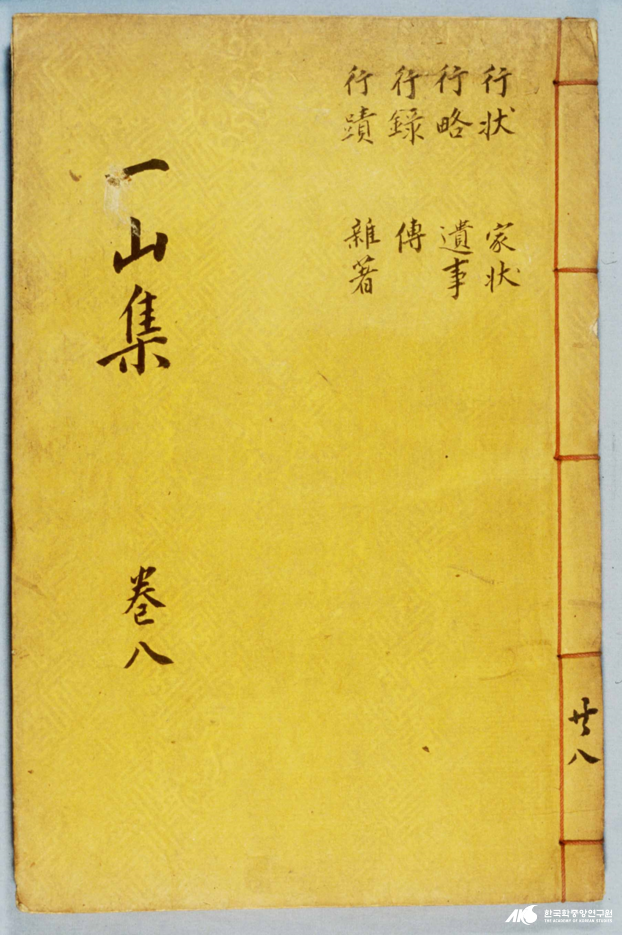 共八
行状 家状
行略 遺事
行録 傳
行蹟 雜著
一山集 卷八
한국학중앙연구원
THE ACADEMY OF KOREAN STUDIES